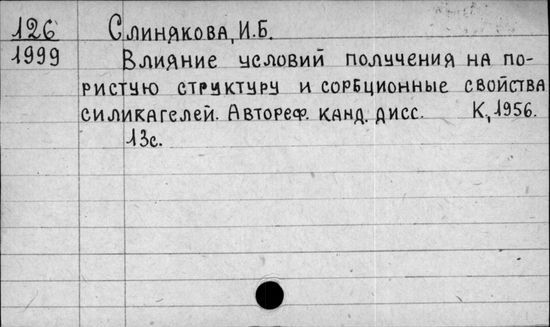 126 Слинякова, И.Б.
1999 Влияние условий получения на по-
ристую структуру и сорбционные свойства
силикагелей. Автореф. канд. дисс. К., 1956.
13с.